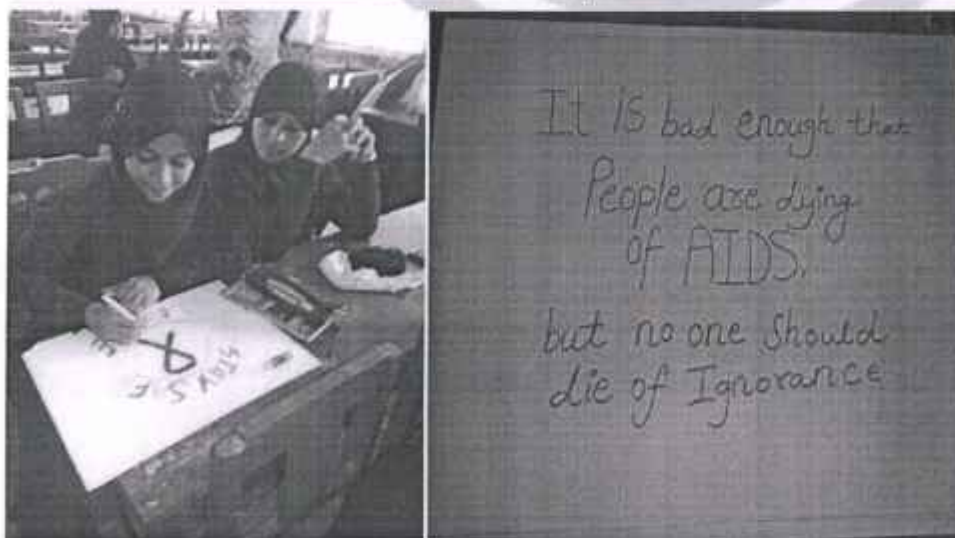 It is bad enough that
People are dying
of AIDS.
but no one should
die of Ignorance
AIDS